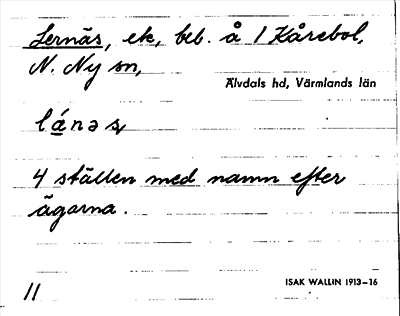 Lernäs, ek, beb. å 1 Kårebol,
N. Ny sn,
Älvdals hd, Värmlands län
lánəs
4 ställen med namn efter
ägarna.
11
ISAK WALLIN 1913-16